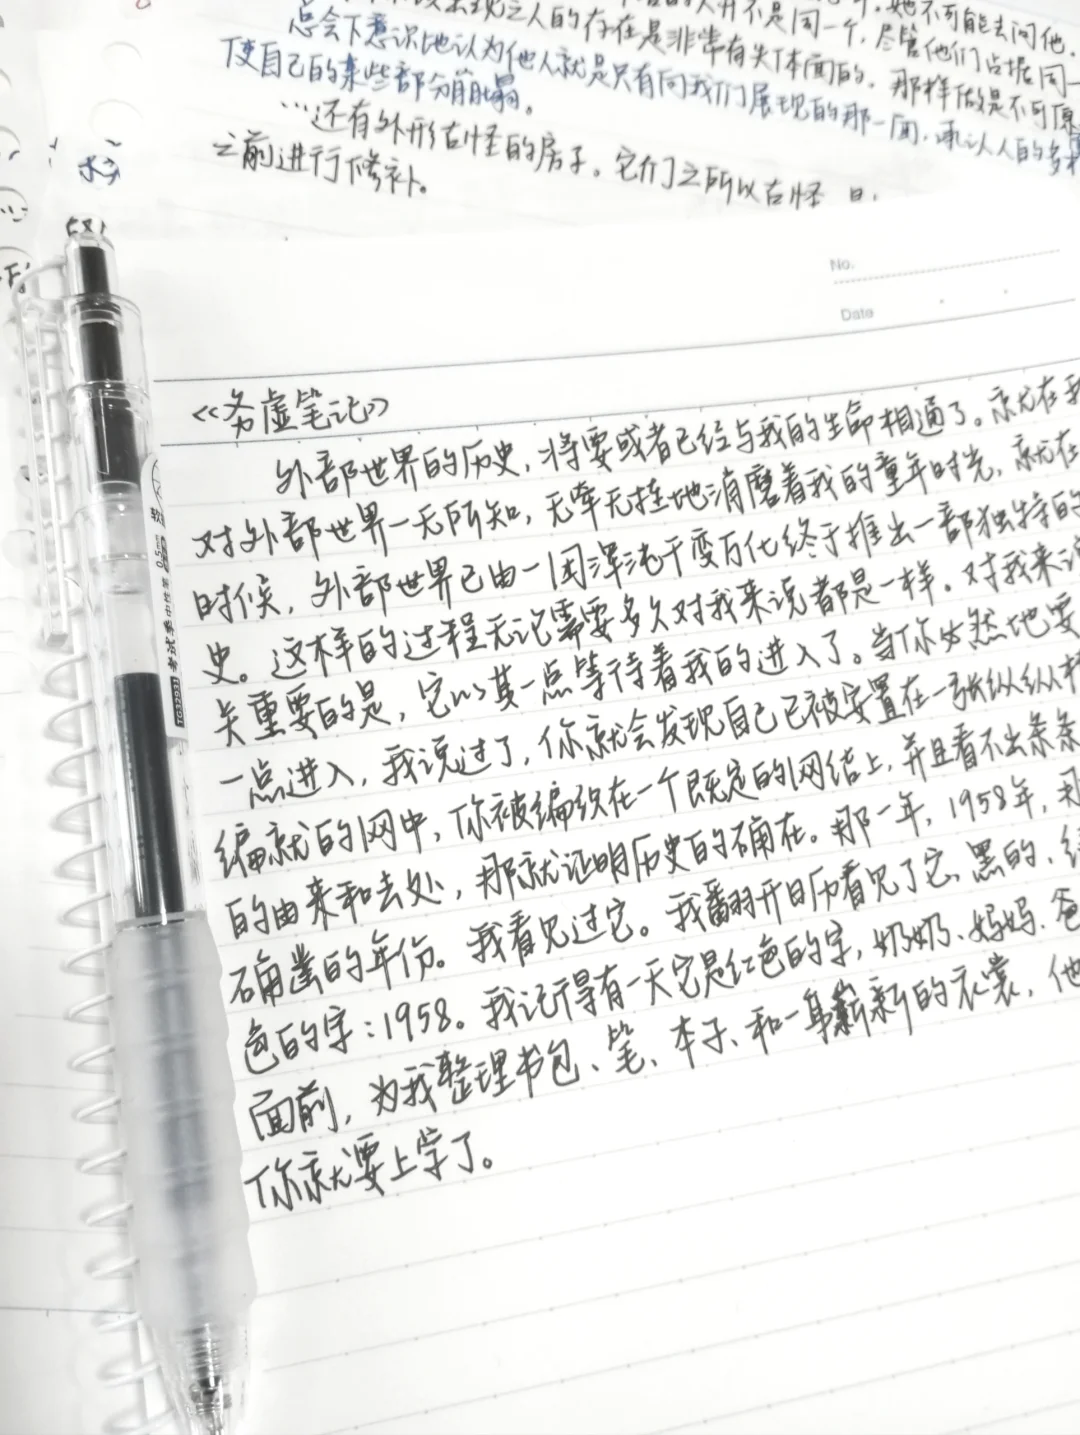 之人的存在是非常有失体面的,那样做是不可原
并不是同一个,尽管他们占据同一
她不可能去问他.
总会下意识地认为他人就是只有向我们展现的那一面,承认人的多
使自己的某些部分崩塌。
…还有外形古怪的房子。它们之所以古怪
之前进行修补。
No.
Date
《务虚笔记》
外部世界的历史,将要或者已经与我的生命相通了。就在我
对外部世界一无所知,无牵无挂地消磨着我的童年时光,就在
时候,外部世界已由一团浑沌千变万化终于推出一部独特的
史。这样的过程无论需要多久对我来说都是一样。对我来说
关重要的是,它以某一点等待着我的进入了。当你必然地要
一点进入,我说过了,你就会发现自己已被安置在一张纵纵横
编就的网中,你被编织在一个既定的网结上,并且看不出条条
的由来和去处,那就证明历史的确在。那一年,1958年,那
确凿的年份。我看见过它。我翻开日历看见了它、黑的、绿
色的字:1958。我记得有一天它是红色的字,奶奶、妈妈、爸
面前,为我整理书包、笔、本子、和一身崭新的衣裳,他
你就要上学了。
0.5